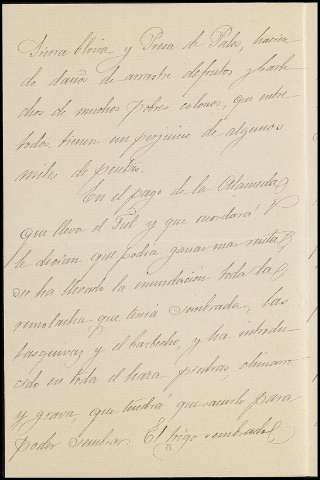 Sierra Elvira y Pinos de Puente, hacien
do daños de arrastre de frutos y barbe
chos de muchos pobres colonos, que entre
todos tienen un perjuicio de algunos
miles de pesetas.
En el pago de la Alameda,
que lleva el Fiel y que
le decian que podia ganar una mitad
se ha llevado la inundación toda la
remolacha que tenia sembrada, las
y el barbecho, y ha introdu
cido en toda el haza piedras
y grava, que tendrá que sacarlo para
poder sembrar. El trigo sembrado